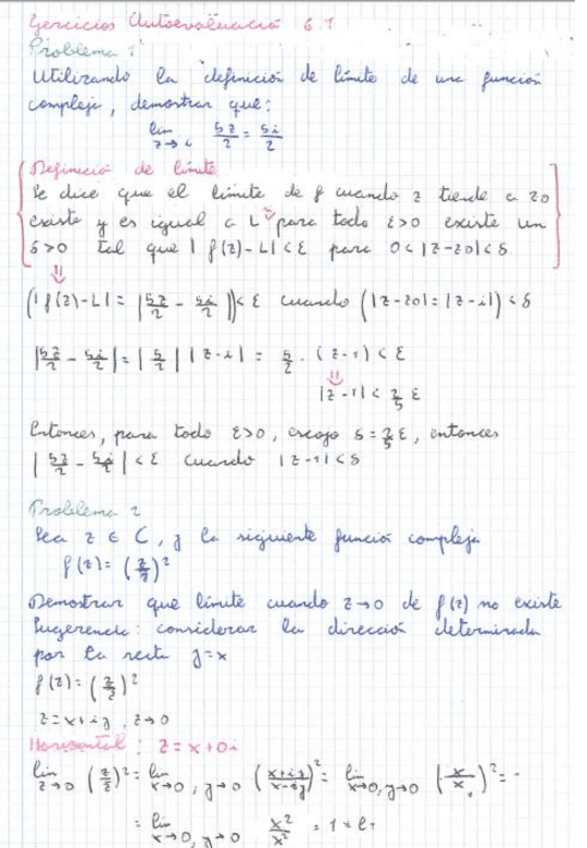 Ejercicios Autoevaluación 6.1
Problema 1
Utilizando la definición de límite de una función
compleja, demostrar que:
lim z→i 5z/2 = 5i/2
Definición de límite
Se dice que el límite de f cuando z tiende a z0
existe y es igual a L para todo ε>0 existe un
δ>0 tal que | f(z)-L|<ε para 0<|z-z0|<δ
(|f(z)-L| = |5z/2 - 5i/2|)<ε cuando (|z-z0|=|z-i|)<δ
|5z/2 - 5i/2| = |5/2| |z-i| = 5/2 · (z-i) < ε
|z-i| < 2/5 ε
Entonces, para todo ε>0, escojo δ=2/5 ε, entonces
|5z/2 - 5i/2| < ε cuando |z-i|<δ
Problema 2
Sea z ∈ C, y la siguiente función compleja
f(z) = (z/z̄)²
Demostrar que límite cuando z→0 de f(z) no existe
Sugerencia: considerar la dirección determinada
por la recta y=x
f(z) = (z/z̄)²
z=x+iy, z→0
Horizontal: z=x+0i
lim z→0 (z/z̄)² = lim x→0, y→0 (x+iy/x-iy)² = lim x→0, y→0 (x/x)² =
= lim x→0, y→0 x²/x² = 1 = L1